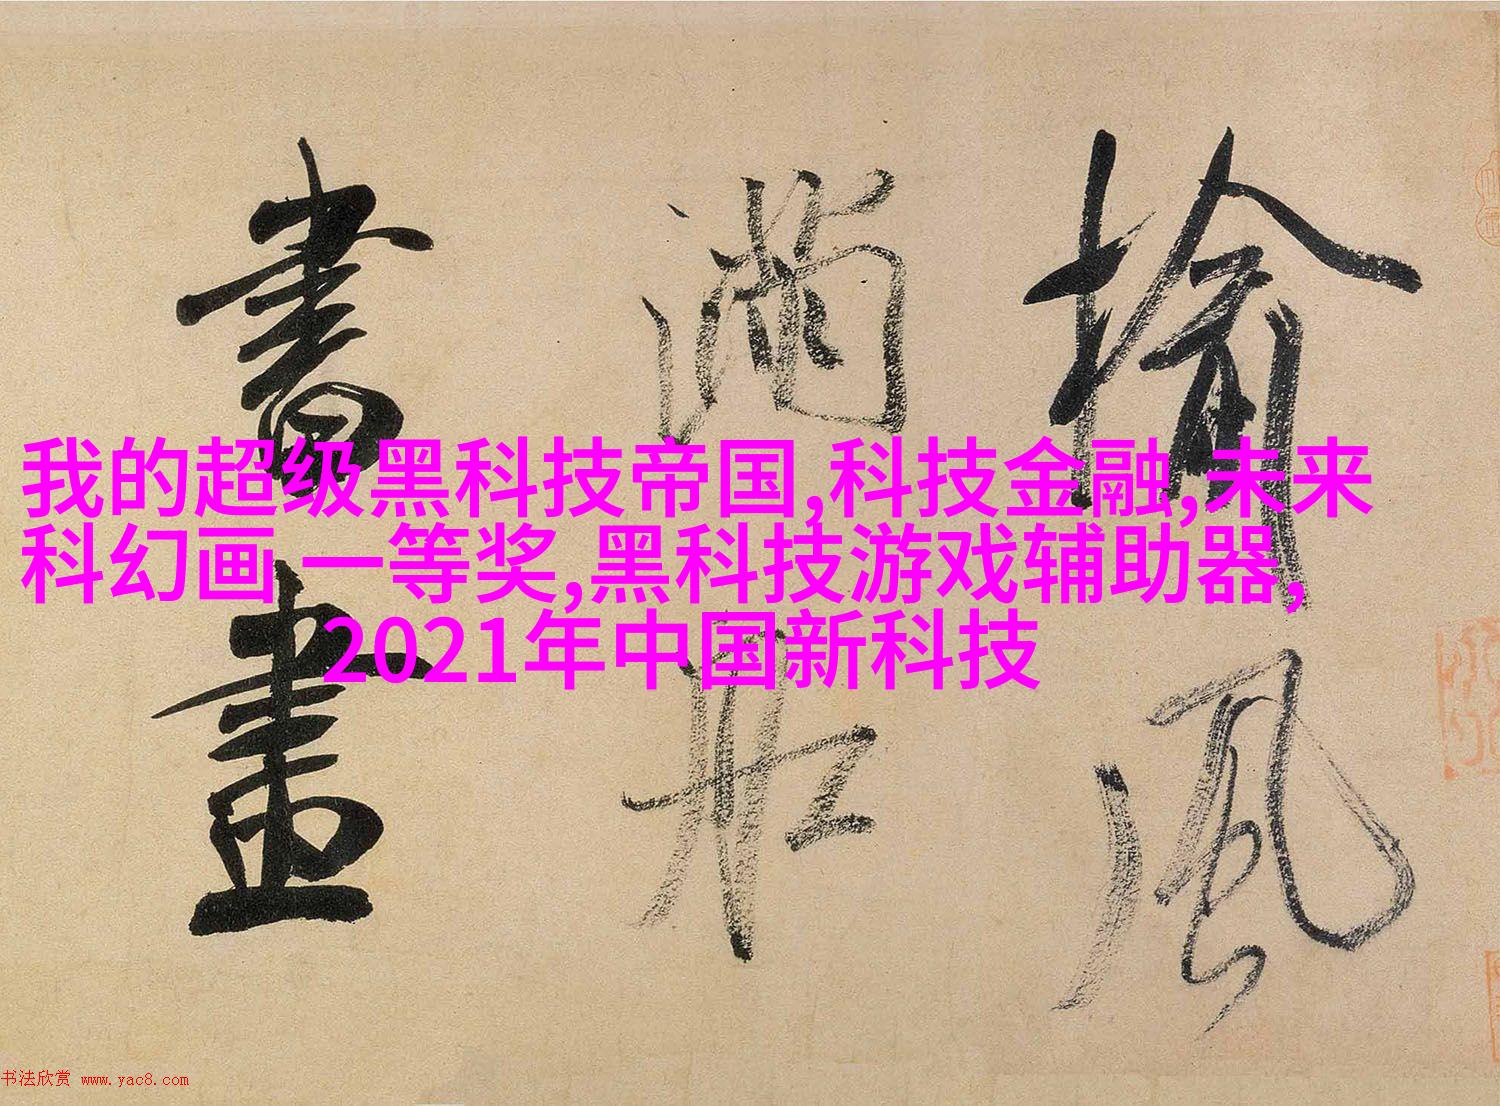 揄風
滿壯
書畫
我的超级黑科技帝国,科技金融,未来
科幻画 一等奖,黑科技游戏辅助器,
2021年中国新科技
书法欣赏 www.yac8.com